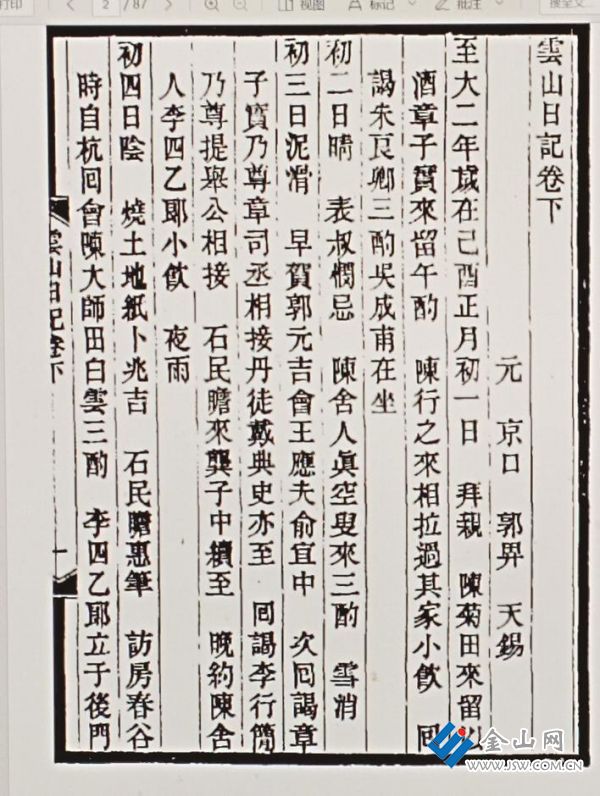 打印 2 /87 视图 标记 批注 搜全文
雲山日記卷下
元 京口 郭畀 天錫
至大二年歲在己酉正月初一日 拜親 陳菊田來留以
酒章子寶來留午酌 陳行之來相拉過其家小飲 回
謁朱艮卿三酌吳成甫在坐
初二日晴 表叔憫忌 陳舍人眞空叟來三酌 雪消
初三日泥滑 早賀郭元吉會王應夫俞宜中 次回謁章
子寶乃尊章司丞相接丹徒戴典史亦至 回謁李行簡
乃尊提舉公相接 石民瞻來龔子中續至 晚約陳舍
人李四乙郎小飲 夜雨
初四日陰 燒土地紙卜兆吉 石民瞻惠筆 訪房春谷
時自杭回會陳大師田白雲三酌 李四乙郎立子後門
雲山日記卷下 一
金山网
WWW.JSW.COM.CN